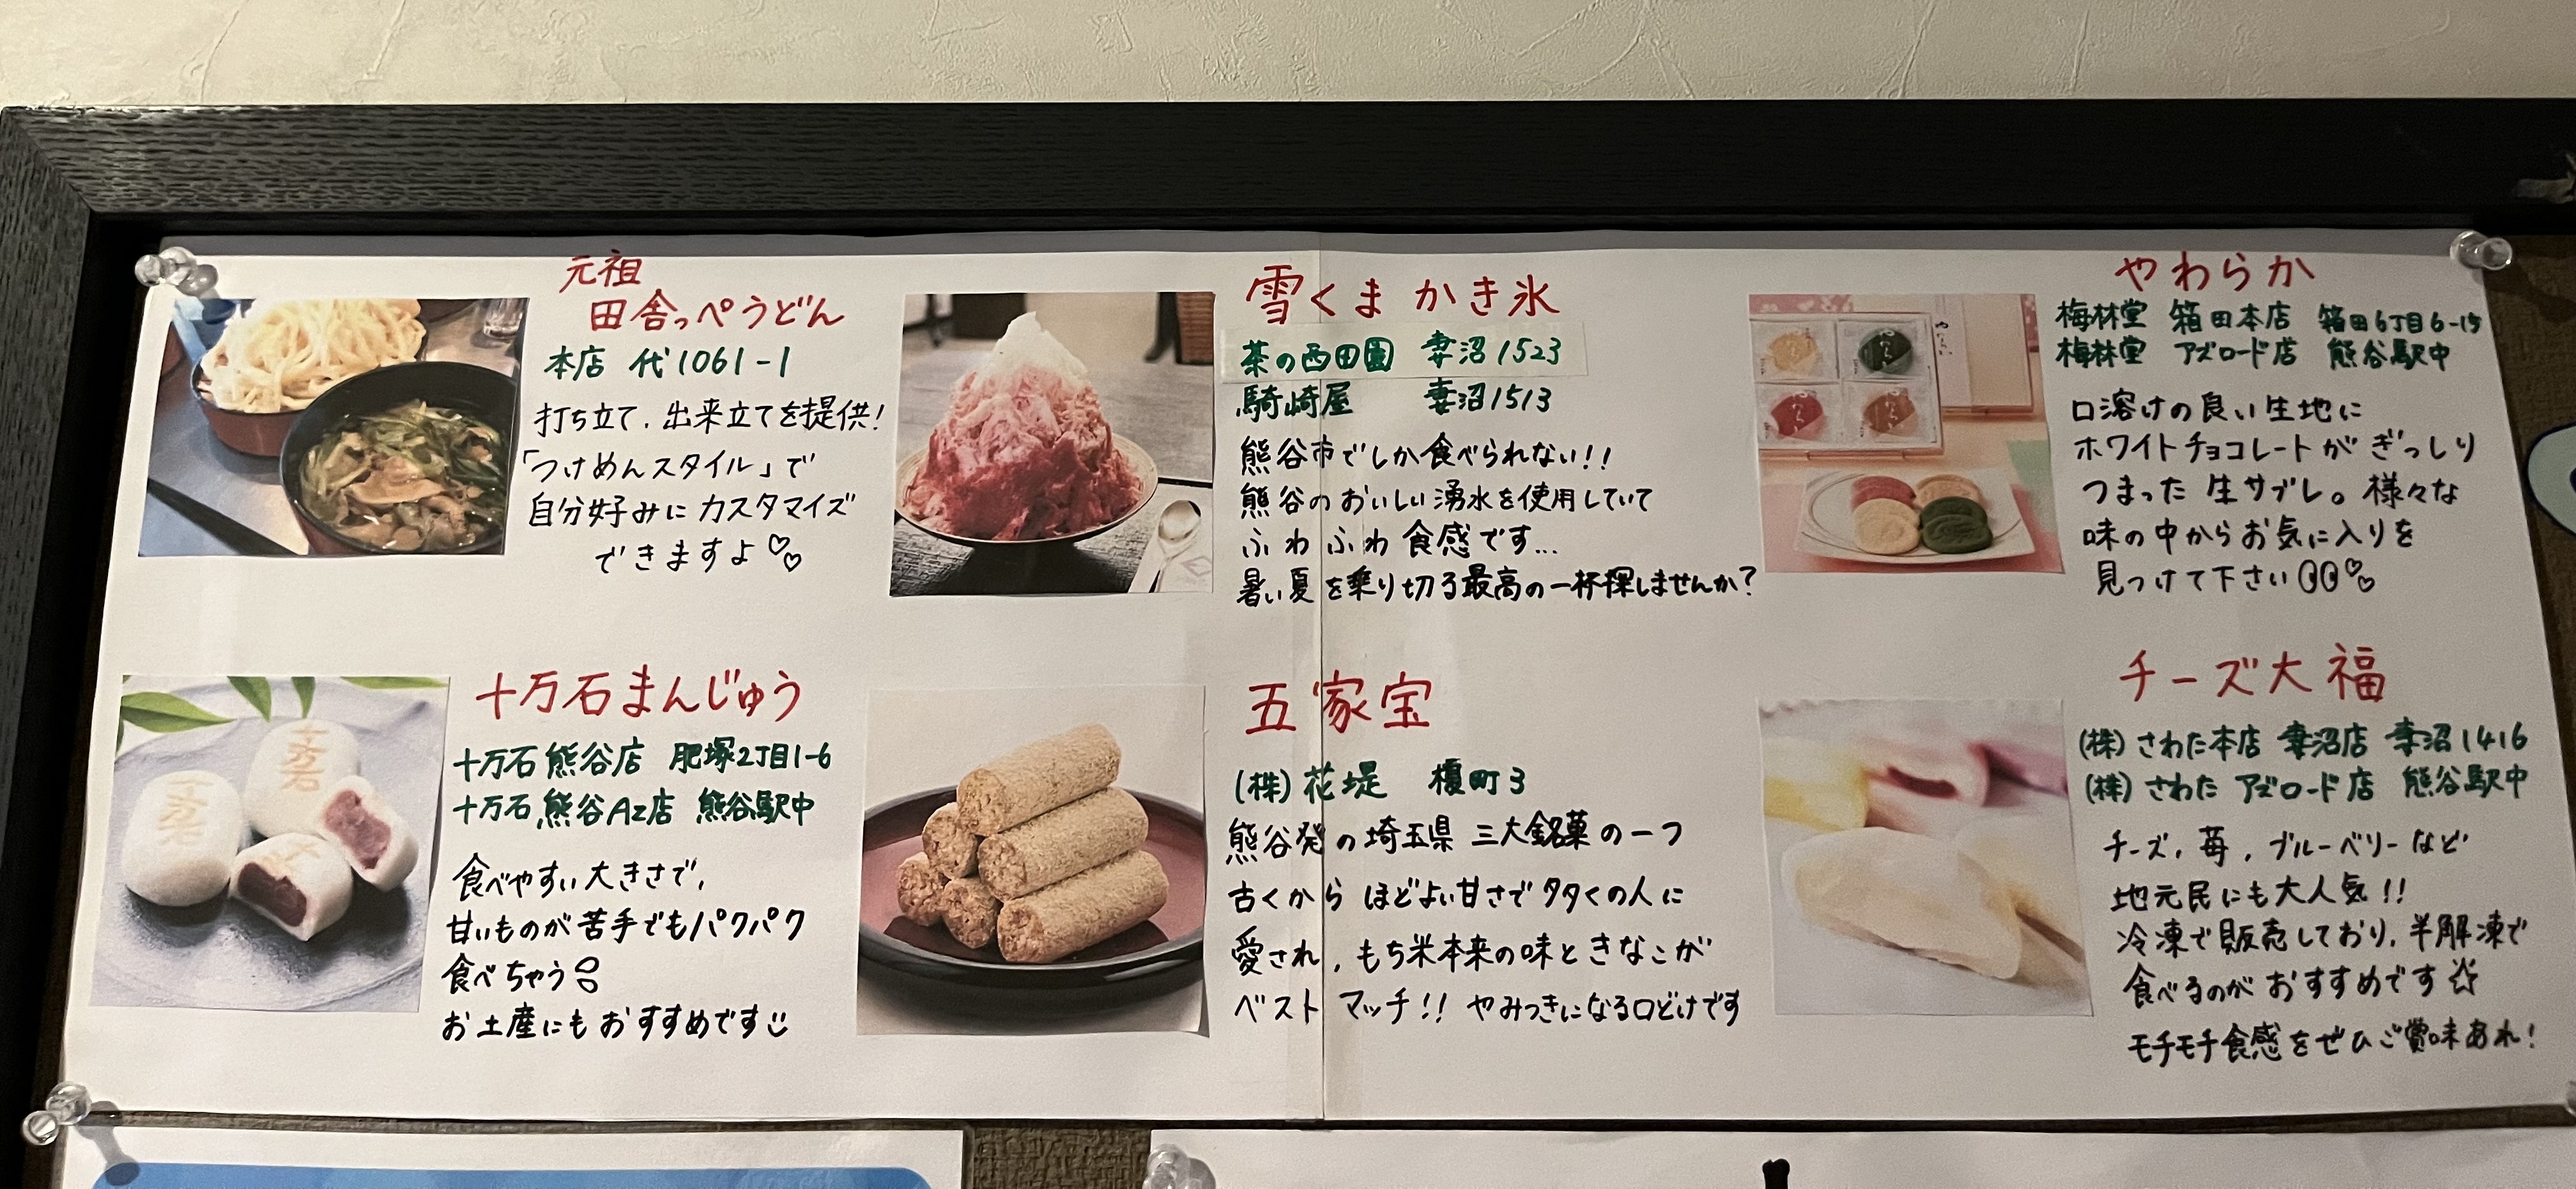 元祖
田舎っぺうどん
本店 代1061-1
打ち立て、出来立てを提供!
「つけめんスタイル」で
自分好みにカスタマイズ
できますよ♡♡
雪くま かき氷
茶の西田園 妻沼1523
騎崎屋 妻沼1513
熊谷市でしか食べられない!!
熊谷のおいしい湧水を使用していて
ふわふわ食感です…
暑い夏を乗り切る最高の一杯探しませんか?
やわらか
梅林堂 箱田本店 箱田6丁目6-15
梅林堂 アズロード店 熊谷駅中
口溶けの良い生地に
ホワイトチョコレートがぎっしり
つまった生サブレ。様々な
味の中からお気に入りを
見つけて下さい♡♡
十万石まんじゅう
十万石熊谷店 肥塚2丁目1-6
十万石熊谷Az店 熊谷駅中
食べやすい大きさで、
甘いものが苦手でもパクパク
食べちゃう
お土産にもおすすめです
十万石
十万石
五家宝
(株)花堤 榎町3
熊谷発の埼玉県三大銘菓の一つ
古くからほどよい甘さで多くの人に
愛され、もち米本来の味ときなこが
ベストマッチ!! やみつきになる口どけです
チーズ大福
(株)さわた本店 妻沼店 妻沼1416
(株)さわた アズロード店 熊谷駅中
チーズ、苺、ブルーベリーなど
地元民にも大人気!!
冷凍で販売しており、半解凍で
食べるのがおすすめです☆
モチモチ食感をぜひご賞味あれ!